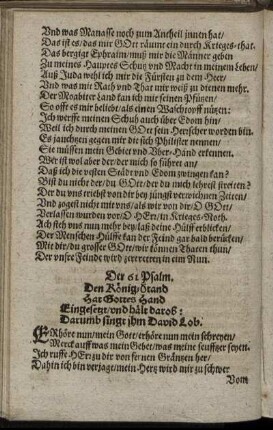 Vnd was Manasse noch zum Antheil innen hat/
Das ist es/das mir GOtt räumt ein durch Krieges-that.
Das bergigt Ephraim/muß mir die Männer geben
Zu meines Hauptes Schutz und Macht in meinem Leben/
Auß Juda wehl ich mir die Fürsten zu dem Heer/
Vnd was mit Rath vnd That mir weiß zu dienen mehr.
Der Moabiter Land kan ich mir seinen Pfützen/
So offt es mir beliebt/als einen Waschtopff nützen:
Ich werffe meinen Schuh auch über Edom hin/
Weil ich durch meinen GOtt sein Herscher worden bin.
Es jauchtzen gegen mir die sich Philister nennen/
Sie müssen mein Gebiet und Vber-Hand erkennen.
Wer ist wol aber der/der mich so führet an/
Daß ich die vesten Städt vnd Edom zwingen kan?
Bist du nicht der/du GOtt/der du mich lehrest streiten?
Der du vns triebst von dir bey jüngst verwichnen Zeiten/
Vnd zogest nicht mit vns/als wir von dir/O GOtt/
Verlassen wurden vor/O HErr/in Krieges-Noth.
Ach steh vns nun mehr bey/laß deine Hülff erblicken/
Der Menschen Hülffe kan der Feind gar bald berücken/
Mit dir/du grosser GOtt/wir können Thaten thun/
Der vnsre Feinde wird zertreten in ein Nun.
Der 61 Psalm.
Den König/
Hat Gottes Hand
Eingesetzt/vnd hält daroß:
Darumb singt jhm David Lob.
ERhöre nun/mein Gott/erhöre nun mein schreyen/
Merck auff was mein Gebet/was meine seufftzer seyen.
Ich ruffe HErr zu dir von fernen Gräntzen her/
Dahin ich bin verjagt/mein Hertz wird mir zu schwer
Vom